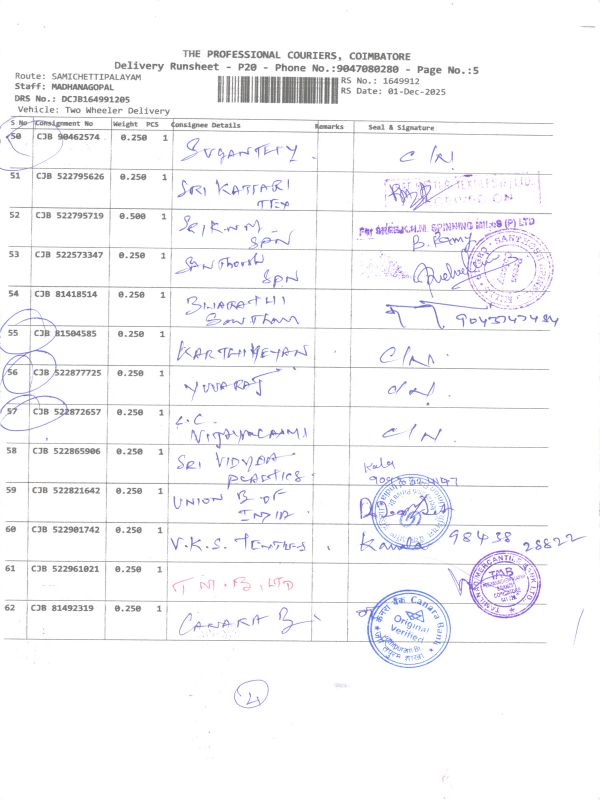 THE PROFESSIONAL COURIERS, COIMBATORE
Delivery Runsheet - P20 - Phone No.:9047080280 - Page No.:5
Route: SAMICHETTIPALAYAM
RS No.: 1649912
Staff: MADHANAGOPAL
RS Date: 01-Dec-2025
DRS No.: DCJB164991205
Vehicle: Two Wheeler Delivery
S No Consignment No Weight PCS Consignee Details Remarks Seal & Signature
50 CJB 90462574 0.250 1 C/N.
51 CJB 522795626 0.250 1 SRI KATTARI
TEX
52 CJB 522795719 0.500 1 SRI K.N.M. For SHREE K.N.M. SPINNING MILLS (P) LTD
SPN
53 CJB 522573347 0.250 1 SANTHOSH
SPN
54 CJB 81418514 0.250 1 BHARATHI
GOWTHAM
55 CJB 81504585 0.250 1 KARTHIKEYAN C/N.
56 CJB 522877725 0.250 1 YUVARAJ C/N.
57 CJB 522872657 0.250 1 C/N
58 CJB 522865906 0.250 1 SRI VIDYAA Kala
PLASTICS.
59 CJB 522821642 0.250 1 UNION B OF
INDIA.
60 CJB 522901742 0.250 1 V.K.S. 98438 28822
61 CJB 522961021 0.250 1 T M. B. LTD TAMILNAD MERCANTILE BANK LTD. TMB
62 CJB 81492319 0.250 1 CANARA B. केनरा बैंक Canara Bank
Original
Verified
4